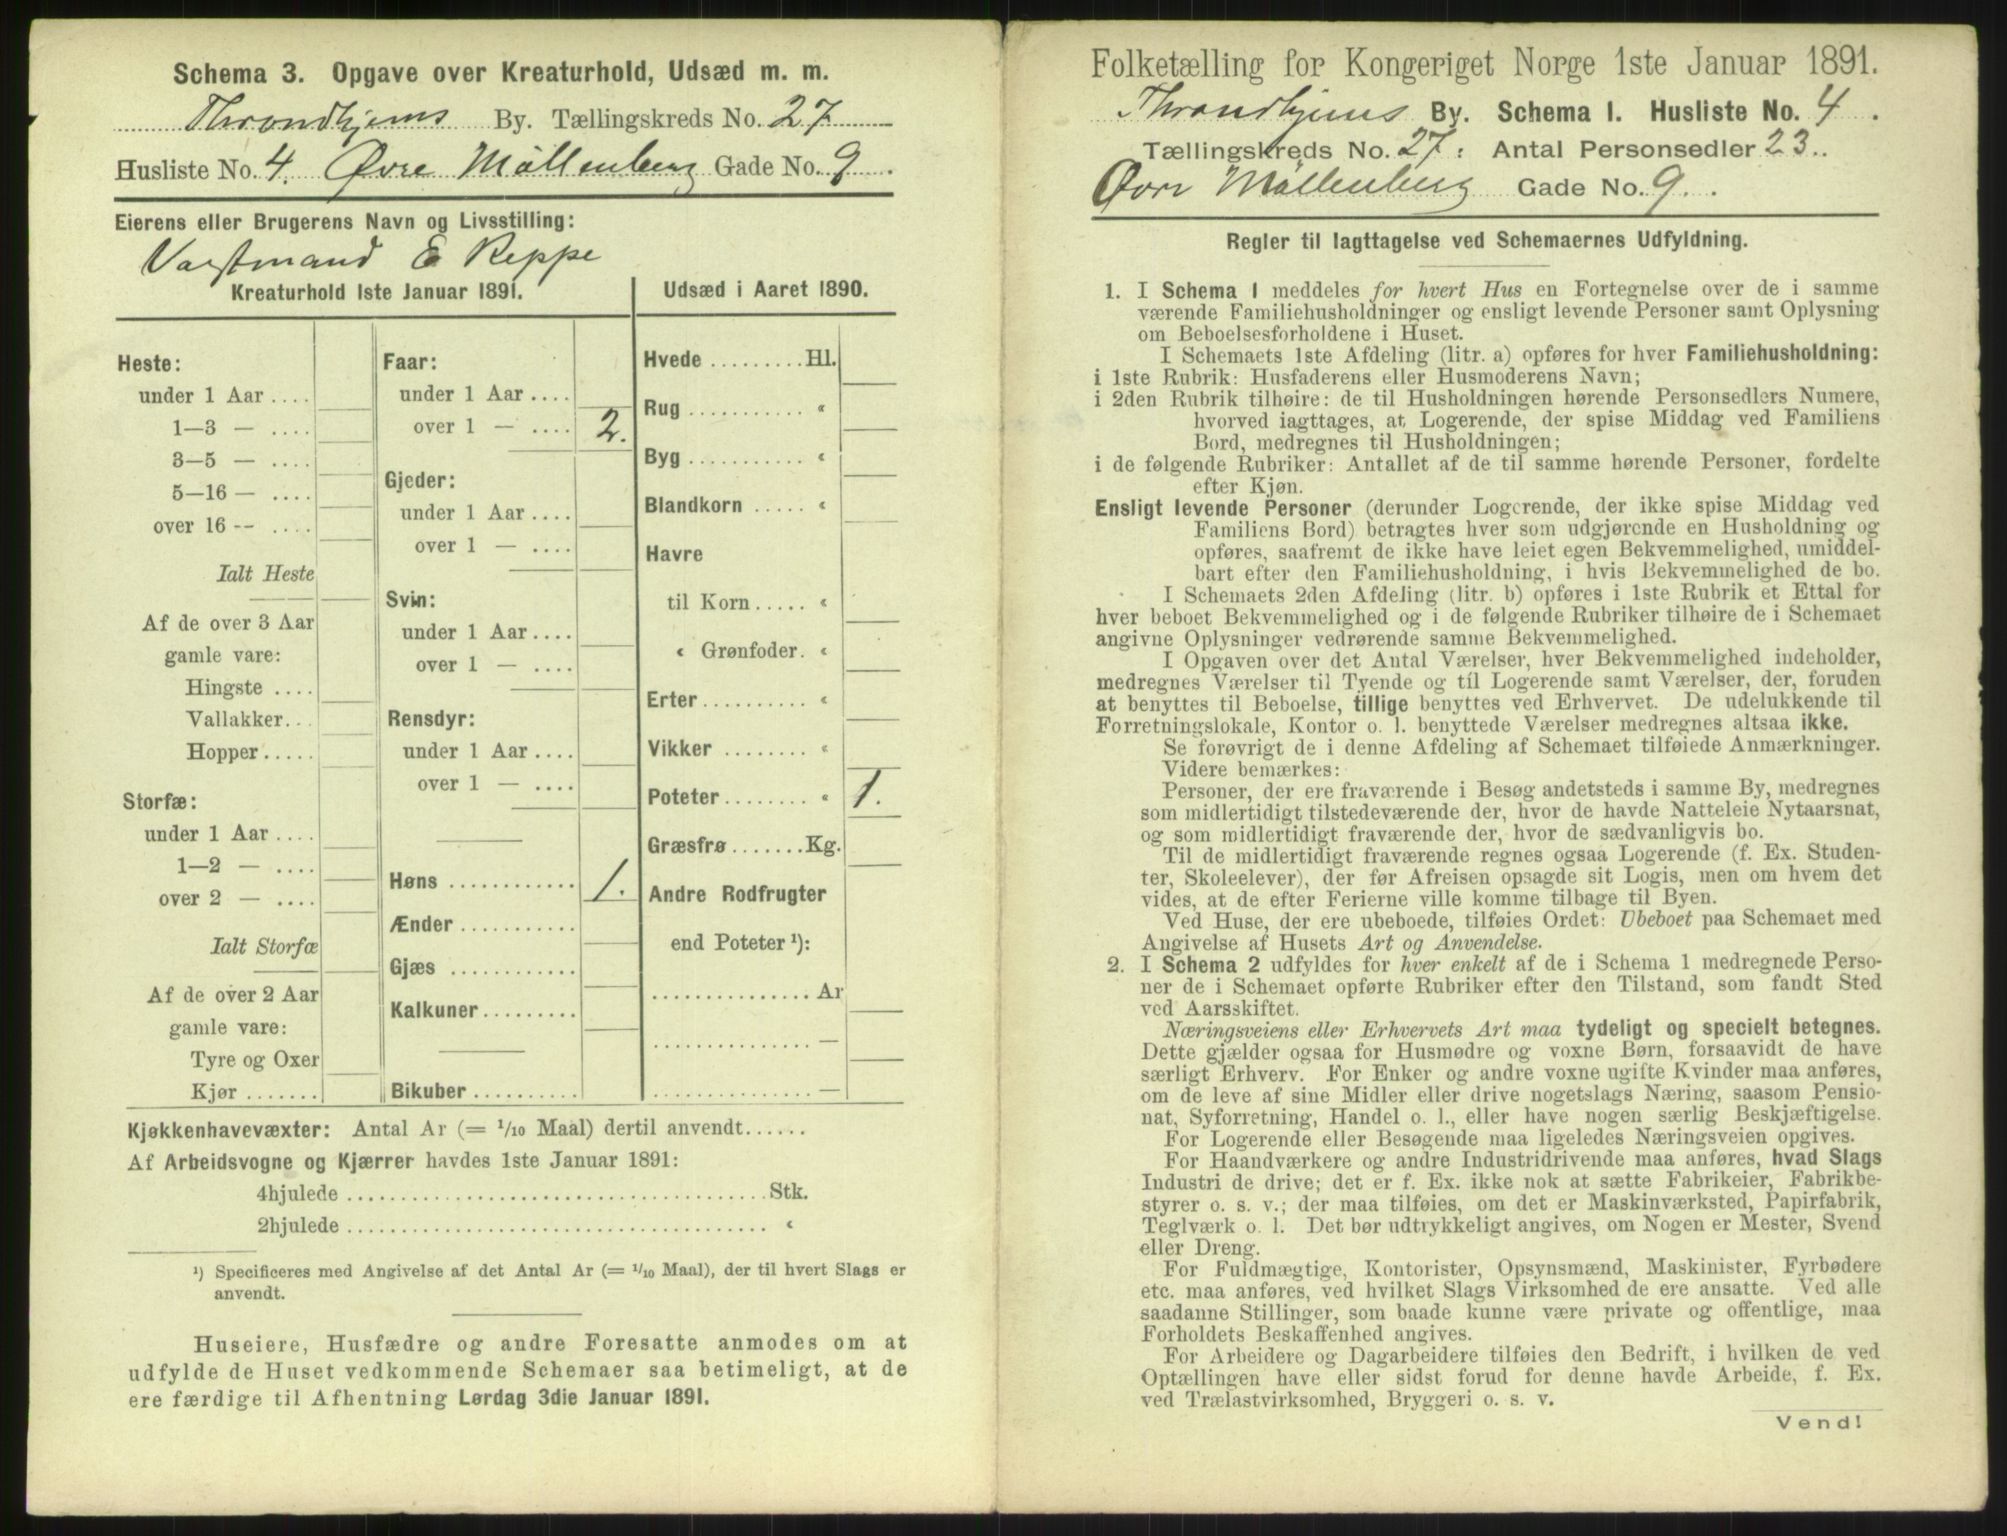 Schema 3. Opgave over Kreaturhold, Udsæd m. m.
Throndhjems By. Tællingskreds No. 27
Husliste No. 4. Øvre Möllenberg Gade No. 9.
Eierens eller Brugerens Navn og Livsstilling:
E Reppe
Kreaturhold 1ste Januar 1891.
Heste:
under 1 Aar ....
1—3 — ....
3—5 — ....
5—16 — ....
over 16 -- ....
Ialt Heste
Af de over 3 Aar
gamle vare:
Hingste ....
Vallakker...
Hopper.....
Storfæ:
under 1 Aar ....
1—2 — ....
over 2 — ....
Ialt Storfæ
Af de over 2 Aar
gamle vare:
Tyre og Oxer
Kjør .......
Faar:
under 1 Aar ....
over 1 — .... 2.
Gjeder:
under 1 Aar ....
over 1 — ....
Svin:
under 1 Aar ....
over 1 — ....
Rensdyr:
under 1 Aar ....
over 1 — ....
Høns ............ 1.
Ænder ...........
Gjæs ............
Kalkuner.........
Bikuber ..........
Udsæd i Aaret 1890.
Hvede .........Hl.
Rug ........... «
Byg ............ «
Blandkorn ..... «
Havre
til Korn ..... «
« Grønfoder. «
Erter.......... «
Vikker ........ «
Poteter ........ « 1.
Græsfrø .......Kg.
Andre Rodfrugter
end Poteter ¹):
............... Ar
............... —
............... —
Kjøkkenhavevæxter: Antal Ar (= 1/10 Maal) dertil anvendt......
Af Arbeidsvogne og Kjærrer havdes 1ste Januar 1891:
4hjulede ........................................Stk.
2hjulede ........................................ «
¹) Specificeres med Angivelse af det Antal Ar (= 1/10 Maal), der til hvert Slags er
anvendt.
Huseiere, Husfædre og andre Foresatte anmodes om at
udfylde de Huset vedkommende Schemaer saa betimeligt, at de
ere færdige til Afhentning Lørdag 3die Januar 1891.
Folketælling for Kongeriget Norge 1ste Januar 1891.
Throndhjems By. Schema 1. Husliste No. 4.
Tællingskreds No. 27. Antal Personsedler 23..
Øvre Möllenberg Gade No. 9..
Regler til Iagttagelse ved Schemaernes Udfyldning.
1. I Schema 1 meddeles for hvert Hus en Fortegnelse over de i samme
værende Familiehusholdninger og ensligt levende Personer samt Oplysning
om Beboelsesforholdene i Huset.
I Schemaets 1ste Afdeling (litr. a) opføres for hver Familiehusholdning:
i 1ste Rubrik: Husfaderens eller Husmoderens Navn;
i 2den Rubrik tilhøire: de til Husholdningen hørende Personsedlers Numere,
hvorved iagttages, at Logerende, der spise Middag ved Familiens
Bord, medregnes til Husholdningen;
i de følgende Rubriker: Antallet af de til samme hørende Personer, fordelte
efter Kjøn.
Ensligt levende Personer (derunder Logerende, der ikke spise Middag ved
Familiens Bord) betragtes hver som udgjørende en Husholdning og
opføres, saafremt de ikke have leiet egen Bekvemmelighed, umiddel-
bart efter den Familiehusholdning, i hvis Bekvemmelighed de bo.
I Schemaets 2den Afdeling (litr. b) opføres i 1ste Rubrik et Ettal for
hver beboet Bekvemmelighed og i de følgende Rubriker tilhøire de i Schemaet
angivne Oplysninger vedrørende samme Bekvemmelighed.
I Opgaven over det Antal Værelser, hver Bekvemmelighed indeholder,
medregnes Værelser til Tyende og til Logerende samt Værelser, der, foruden
at benyttes til Beboelse, tillige benyttes ved Erhvervet. De udelukkende til
Forretningslokale, Kontor o. l. benyttede Værelser medregnes altsaa ikke.
Se forøvrigt de i denne Afdeling af Schemaet tilføiede Anmærkninger.
Videre bemærkes:
Personer, der ere fraværende i Besøg andetsteds i samme By, medregnes
som midlertidigt tilstedeværende der, hvor de havde Natteleie Nytaarsnat,
og som midlertidigt fraværende der, hvor de sædvanligvis bo.
Til de midlertidigt fraværende regnes ogsaa Logerende (f. Ex. Studen-
ter, Skoleelever), der før Afreisen opsagde sit Logis, men om hvem det
vides, at de efter Ferierne ville komme tilbage til Byen.
Ved Huse, der ere ubeboede, tilføies Ordet: Ubeboet paa Schemaet med
Angivelse af Husets Art og Anvendelse.
2. I Schema 2 udfyldes for hver enkelt af de i Schema 1 medregnede Perso-
ner de i Schemaet opførte Rubriker efter den Tilstand, som fandt Sted
ved Aarsskiftet.
Næringsveiens eller Erhvervets Art maa tydeligt og specielt betegnes.
Dette gjælder ogsaa for Husmødre og voxne Børn, forsaavidt de have
særligt Erhverv. For Enker og andre voxne ugifte Kvinder maa anføres,
om de leve af sine Midler eller drive nogetslags Næring, saasom Pensio-
nat, Syforretning, Handel o. l., eller have nogen særlig Beskjæftigelse.
For Logerende eller Besøgende maa ligeledes Næringsveien opgives.
For Haandværkere og andre Industridrivende maa anføres, hvad Slags
Industri de drive; det er f. Ex. ikke nok at sætte Fabrikeier, Fabrikbe-
styrer o. s. v.; der maa tilføies, om det er Maskinværksted, Papirfabrik,
Teglværk o. l. Det bør udtrykkeligt angives, om Nogen er Mester, Svend
eller Dreng.
For Fuldmægtige, Kontorister, Opsynsmænd, Maskinister, Fyrbødere
etc. maa anføres, ved hvilket Slags Virksomhed de ere ansatte. Ved alle
saadanne Stillinger, som baade kunne være private og offentlige, maa
Forholdets Beskaffenhed angives.
For Arbeidere og Dagarbeidere tilføies den Bedrift, i hvilken de ved
Optællingen have eller sidst forud for denne havde Arbeide, f. Ex.
ved Trælastvirksomhed, Bryggeri o. s. v.
Vend!